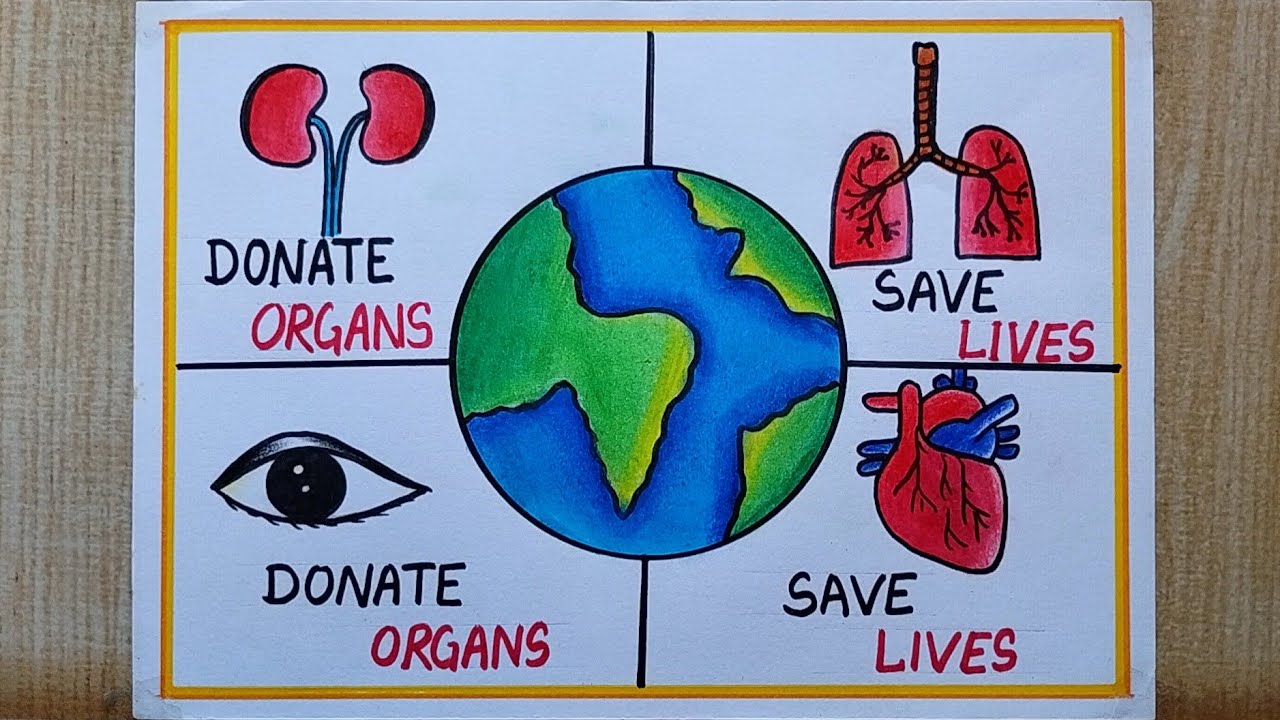 DONATE
ORGANS
SAVE
LIVES
DONATE
ORGANS
SAVE
LIVES